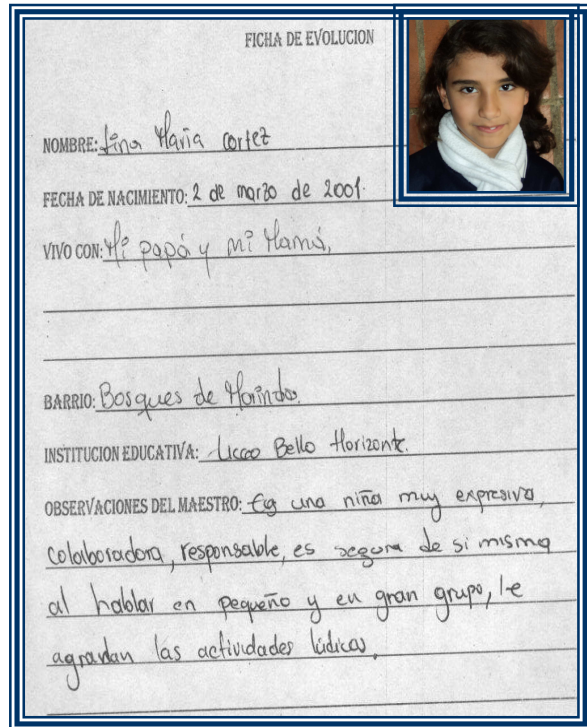 FICHA DE EVOLUCION
NOMBRE: Lina Maria cortez
FECHA DE NACIMIENTO: 2 de marzo de 2001.
VIVO CON: Mi papá y mi Mamá,
BARRIO: Bosques de
INSTITUCION EDUCATIVA: Liceo Bello Horizonte.
OBSERVACIONES DEL MAESTRO: Es una niña muy expresiva,
colaboradora, responsable, es segura de si misma
al hablar en pequeño y en gran grupo, le
agradan las actividades lúdicas,